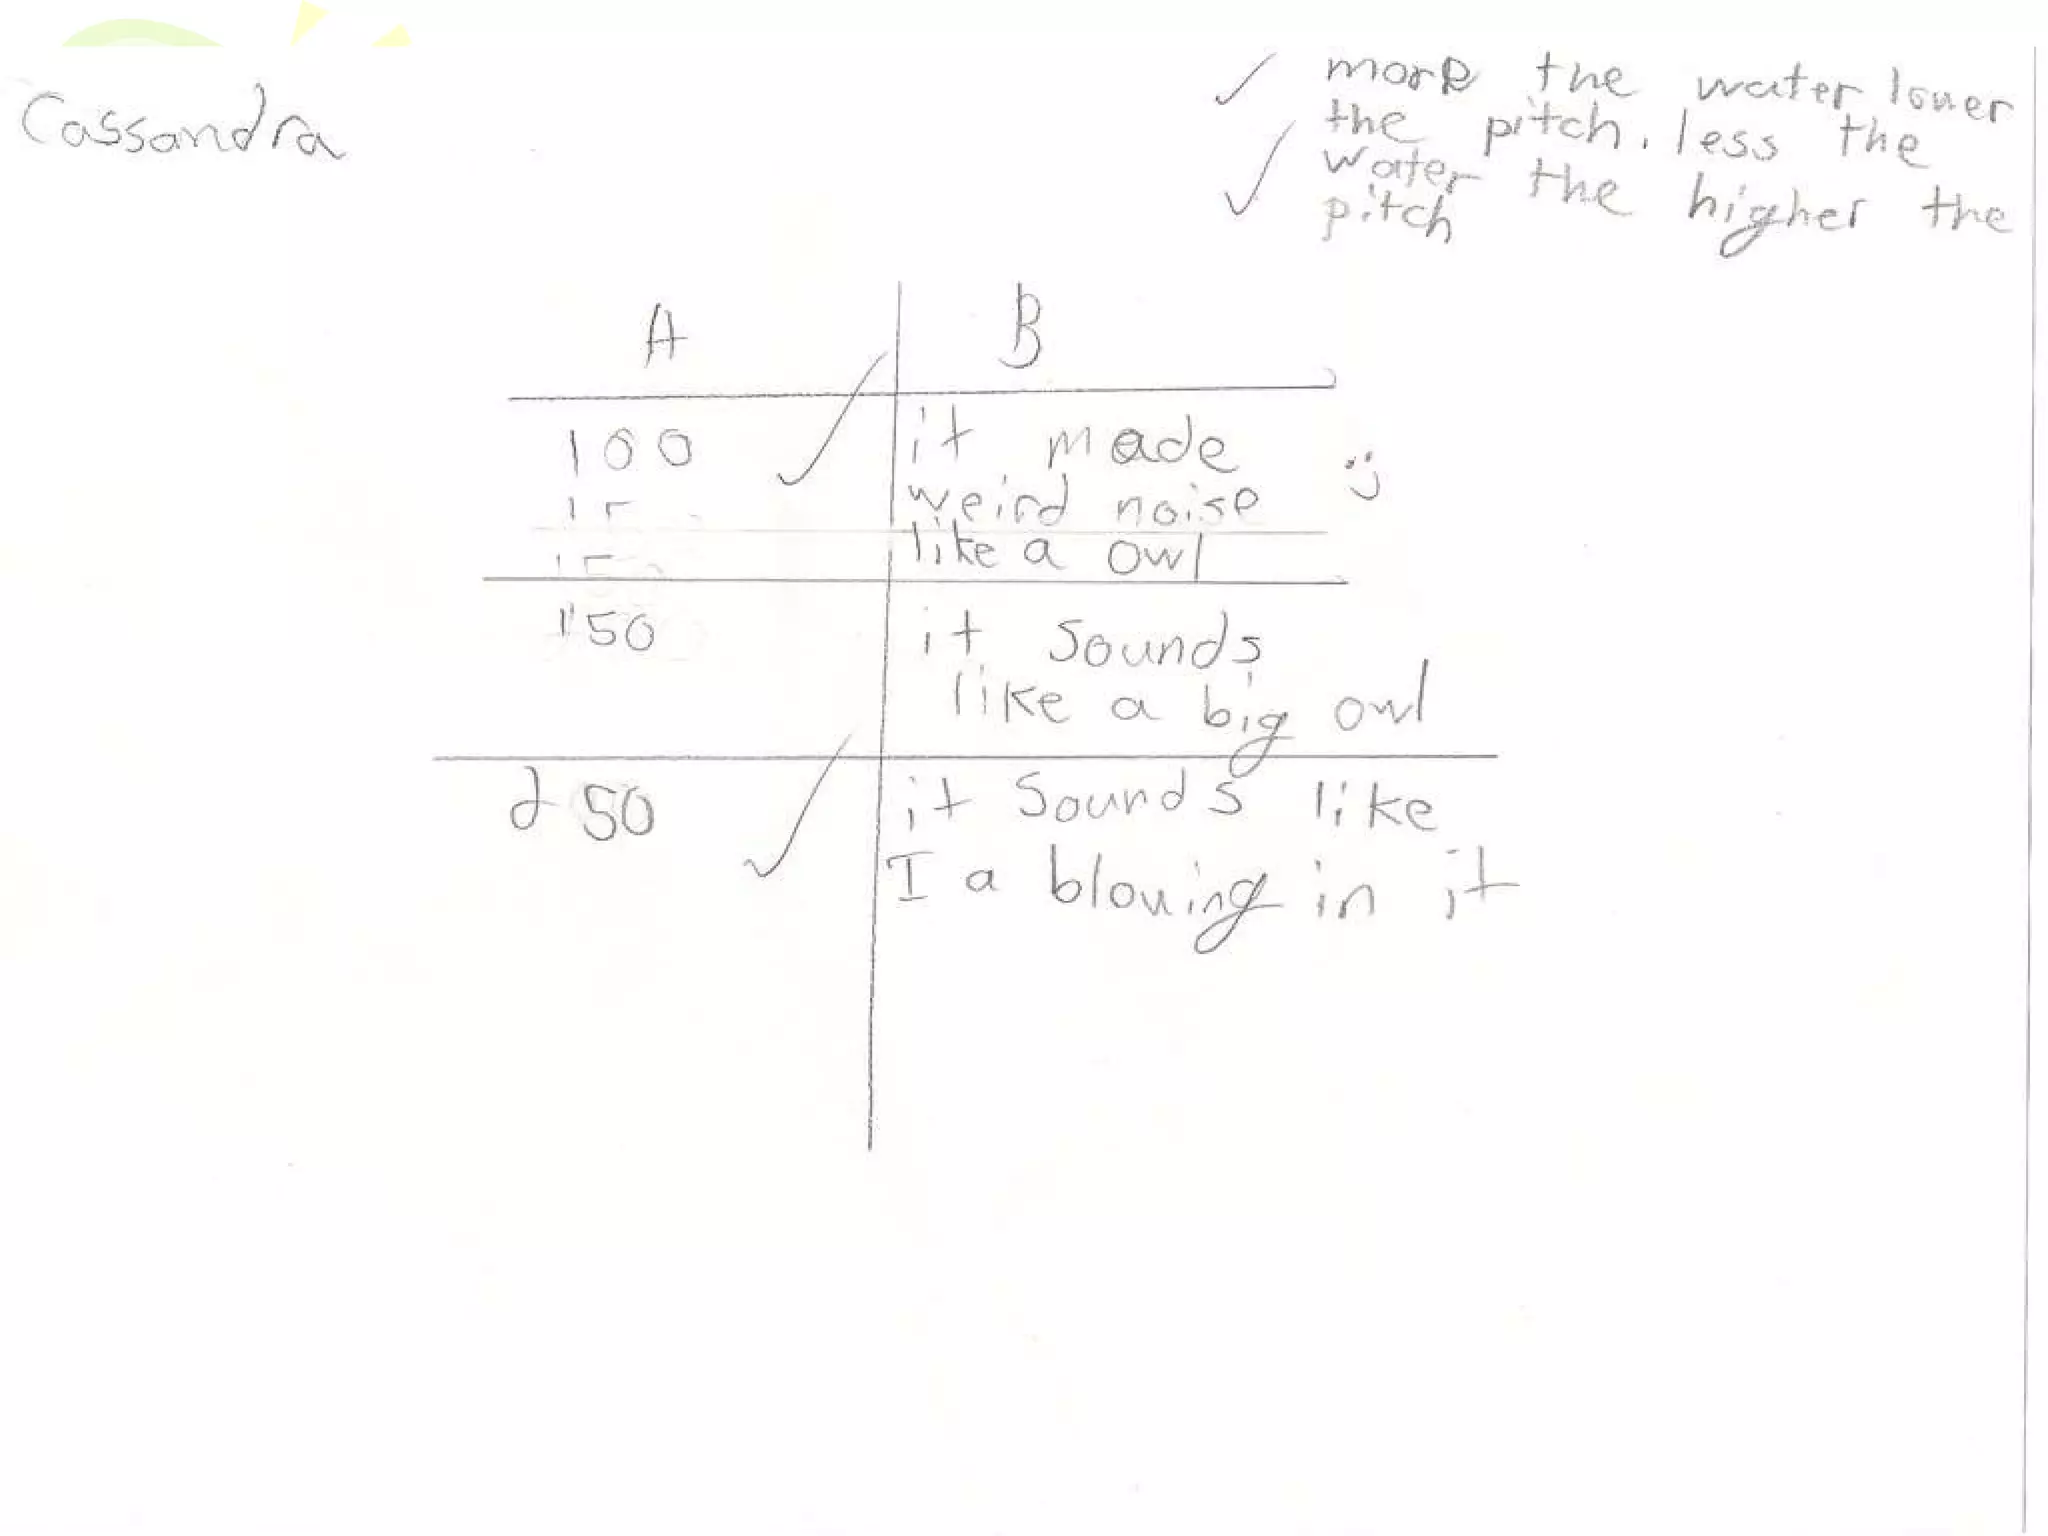 Cassandra
more the water lower
the pitch. less the
water the higher the
pitch
A B
100 it made
weird noise
like a owl
150 it sounds
like a big owl
250 it sounds like
I a blowing in it